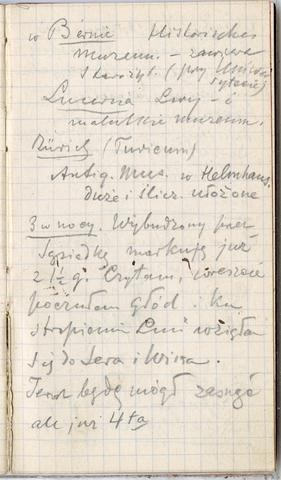 w Bernie Historisches
muzeum. – zawiera
starożyt. (przy Uniwer
sytecie)
Lucerna Lwy – i
malutkie muzeum.
Zürich (Turicum)
Antiq. Mus. w Helmhaus.
duże i ślicz. ułożone
3 w nocy. Wybudzony przez
Sąsiadkę markuję już
2 1/2 g. Czytam, wreszcie
poczułem głód i ku
strapieniu Luni wziąłem
się do sera i wina.
Teraz będę mógł zasnąć
ale już 4ta